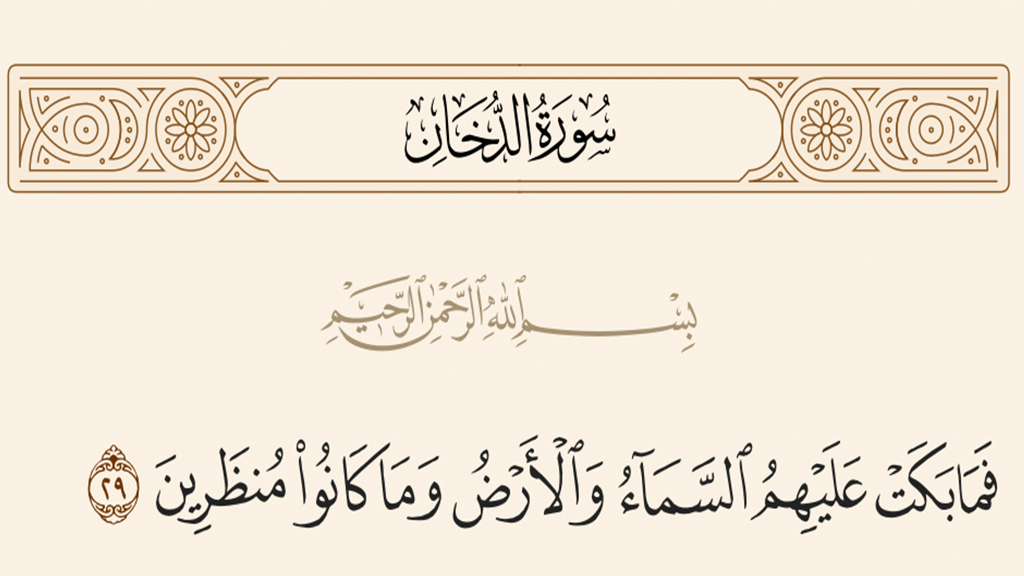 سُورَةُ الدُّخَانِ
بِسْمِ ٱللَّهِ ٱلرَّحْمَٰنِ ٱلرَّحِيمِ
فَمَا بَكَتْ عَلَيْهِمُ ٱلسَّمَآءُ وَٱلْأَرْضُ وَمَا كَانُوا۟ مُنظَرِينَ ٢٩